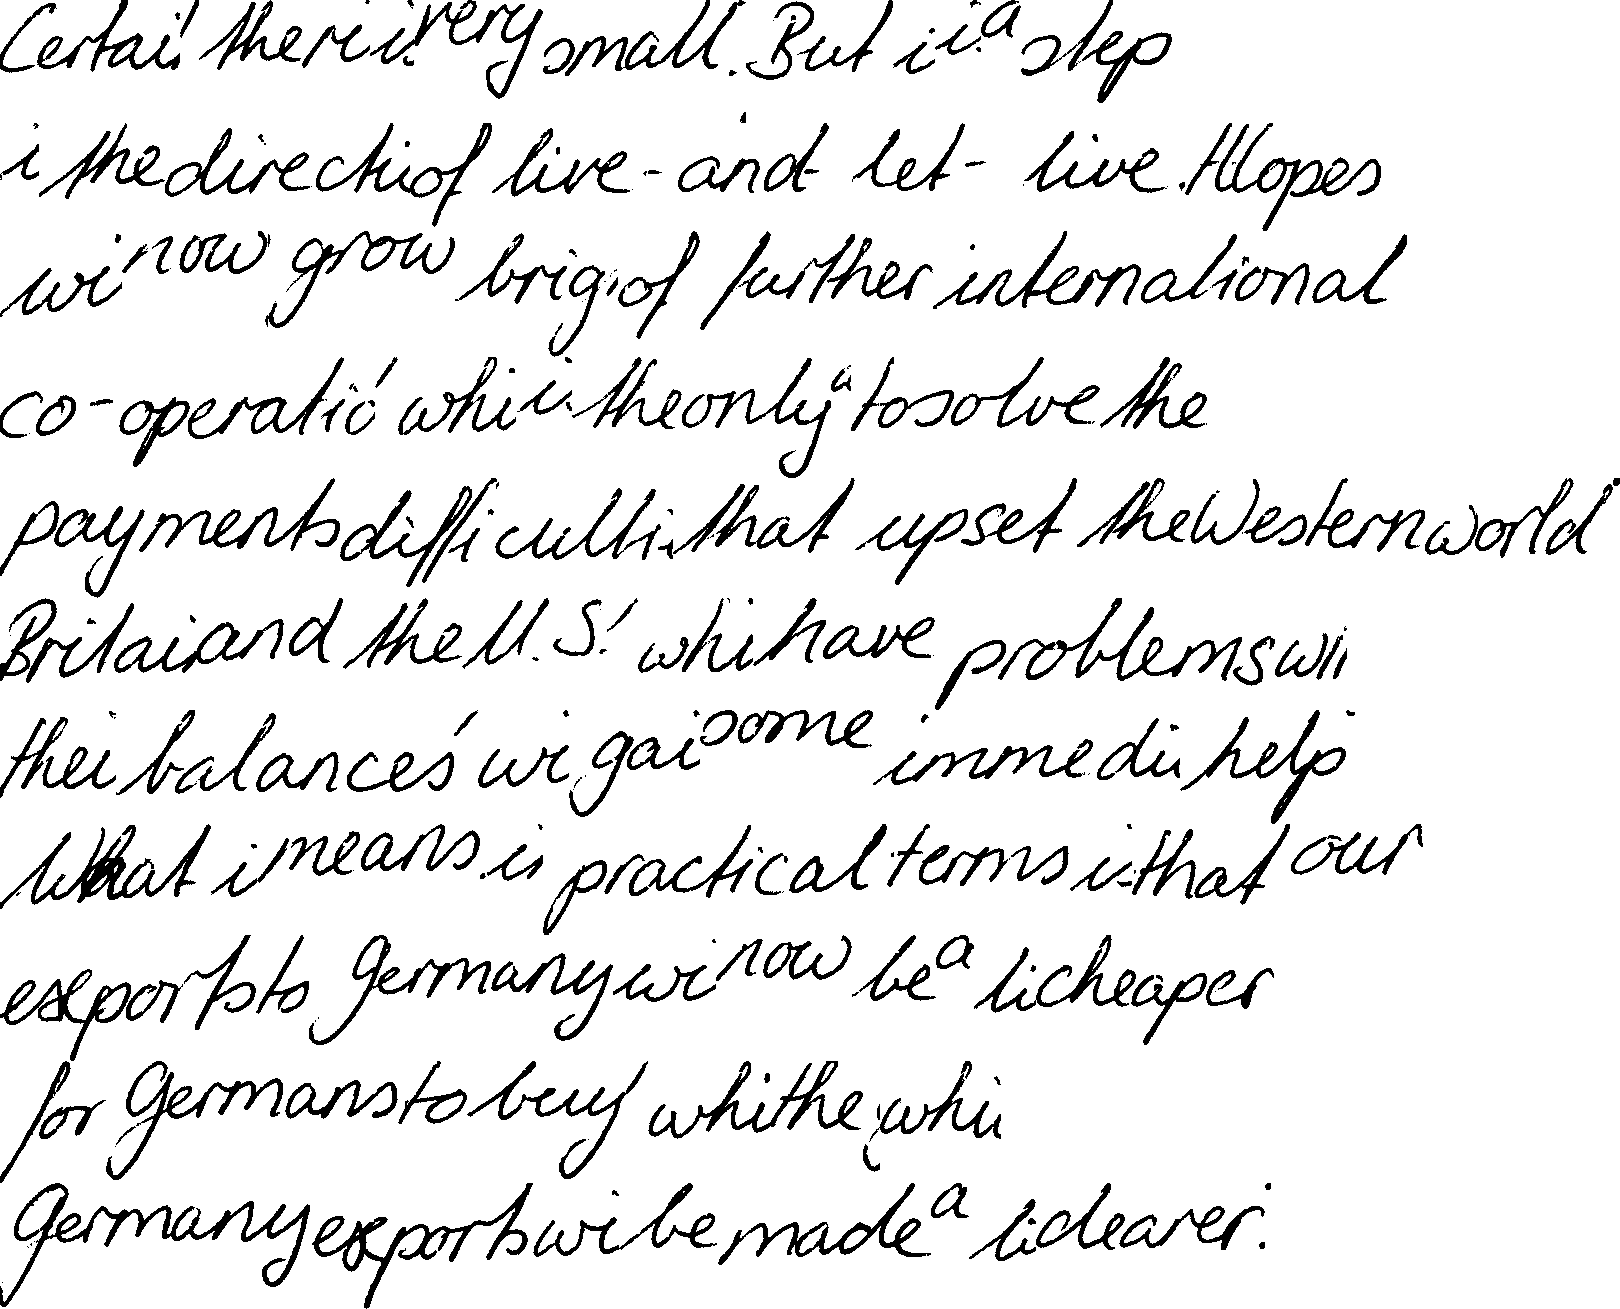 Certai theri i very small. But i i a step
i the directi of live-and-let-live. Hopes
wi now grow brig of further international
co-operatio whi i the only a to solve the
payments difficulti that upset the Western world
Britai and the U.S. whi have problems wi
thei balances wi gai some immedi help
What i means i practical terms i that our
exports to Germany wi now be a li cheaper
for Germans to buy whi the whi
Germany exports wi be made a li dearer.